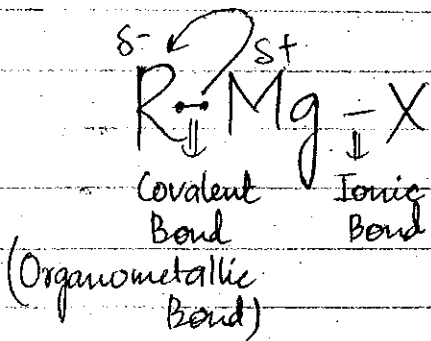 δ- δ+
R-Mg-X
Covalent Ionic
Bond Bond
(Organometallic
Bond)